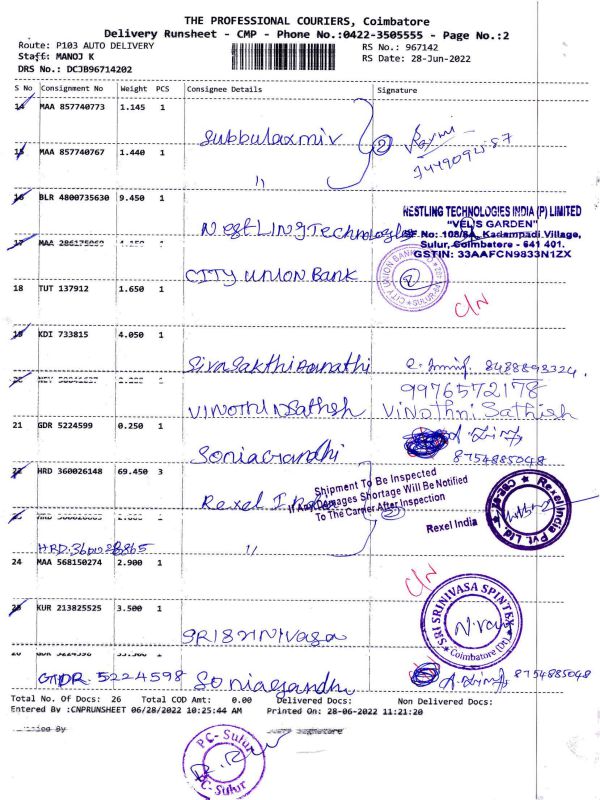 THE PROFESSIONAL COURIERS, Coimbatore
Delivery Runsheet - CMP - Phone No.:0422-3505555 - Page No.:2
Route: P103 AUTO DELIVERY
RS No.: 967142
Staff: MANOJ K
RS Date: 28-Jun-2022
DRS No.: DCJB96714202
S No Consignment No Weight PCS Consignee Details Signature
14 MAA 857740773 1.145 1
Subbulaxmiv
2
15 MAA 857740767 1.440 1
"
16 BLR 4800735630 9.450 1
NestLING Technologies
NESTLING TECHNOLOGIES INDIA (P) LIMITED
"VEL'S GARDEN"
SF No: 108/8A, Kadampadi Village,
Sulur, Coimbatore - 641 401.
GSTIN: 33AAFCN9833N1ZX
17 MAA 1
CITY UNION Bank
CITY UNION BANK
SULUR
18 TUT 137912 1.650 1
C/N
19 KDI 733815 4.050 1
8488893324
9976572178
1
VINOTHINSathesh
ViNothni Sathish
21 GDR 5224599 0.250 1
Soniagandhi
8754885048
22 HRD 360026148 69.450 3
Rexel I
Shipment To Be Inspected
If Any Damages Shortage Will Be Notified
To The Carrier After Inspection
Rexel India
Rexel India Pvt. Ltd.
CBE-21
23 HRD 1
"
24 MAA 568150274 2.900 1
C/N
25 KUR 213825525 3.500 1
SRISRINIVASA
SRI SRINIVASA SPINTEX
Coimbatore (Dt)
GDR 5224598
Soniagandhi
8754885048
Total No. Of Docs: 26 Total COD Amt: 0.00 Delivered Docs: Non Delivered Docs:
Entered By :CNPRUNSHEET 06/28/2022 10:25:44 AM Printed On: 28-06-2022 11:21:20
PC- Sulur
PC- Sulur